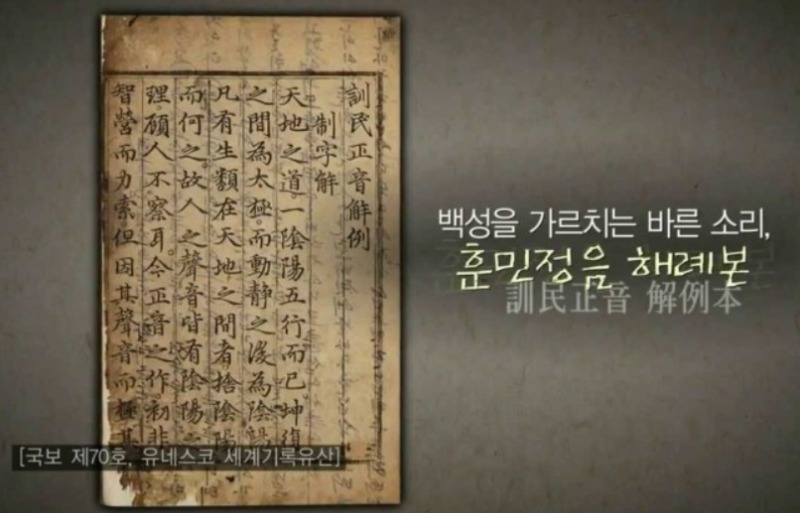 訓民正音解例
制字解
天地之道一陰陽五行而已坤復
之間為太極而動靜之後為陰陽
凡有生類在天地之間者捨陰陽
而何之故人之聲音皆有陰陽之
理顧人不察耳今正音之作初非
智營而力索但因其聲音而極其
백성을 가르치는 바른 소리,
훈민정음 해례본
訓民正音 解例本
[국보 제70호, 유네스코 세계기록유산]